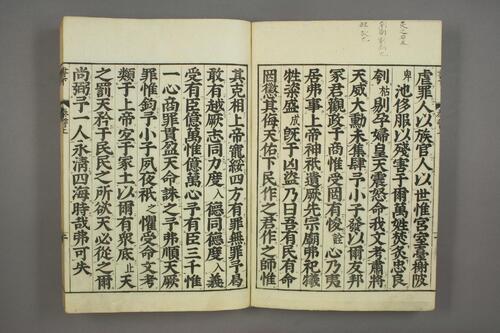 虐罪人以族官人以世惟宮室臺榭陂
池侈服以殘害于爾萬姓焚炙忠良
刳剔孕婦皇天震怒命我文考肅將
天威大勳未集肆予小子發以爾友邦
冢君觀政于商惟受罔有悛心乃夷
居弗事上帝神祇遺厥先宗廟弗祀犧
牲粢盛既于凶盜乃曰吾有民有命
罔懲其侮天佑下民作之君作之師惟
其克相上帝寵綏四方有罪無罪予曷
敢有越厥志同力度德同德度義
受有臣億萬惟億萬心予有臣三千惟
一心商罪貫盈天命誅之予弗順天厥
罪惟鈞予小子夙夜祗懼受命文考
類于上帝宜于冢土以爾有衆底天
之罰天矜于民民之所欲天必從之爾
尚弼予一人永清四海時哉弗可失